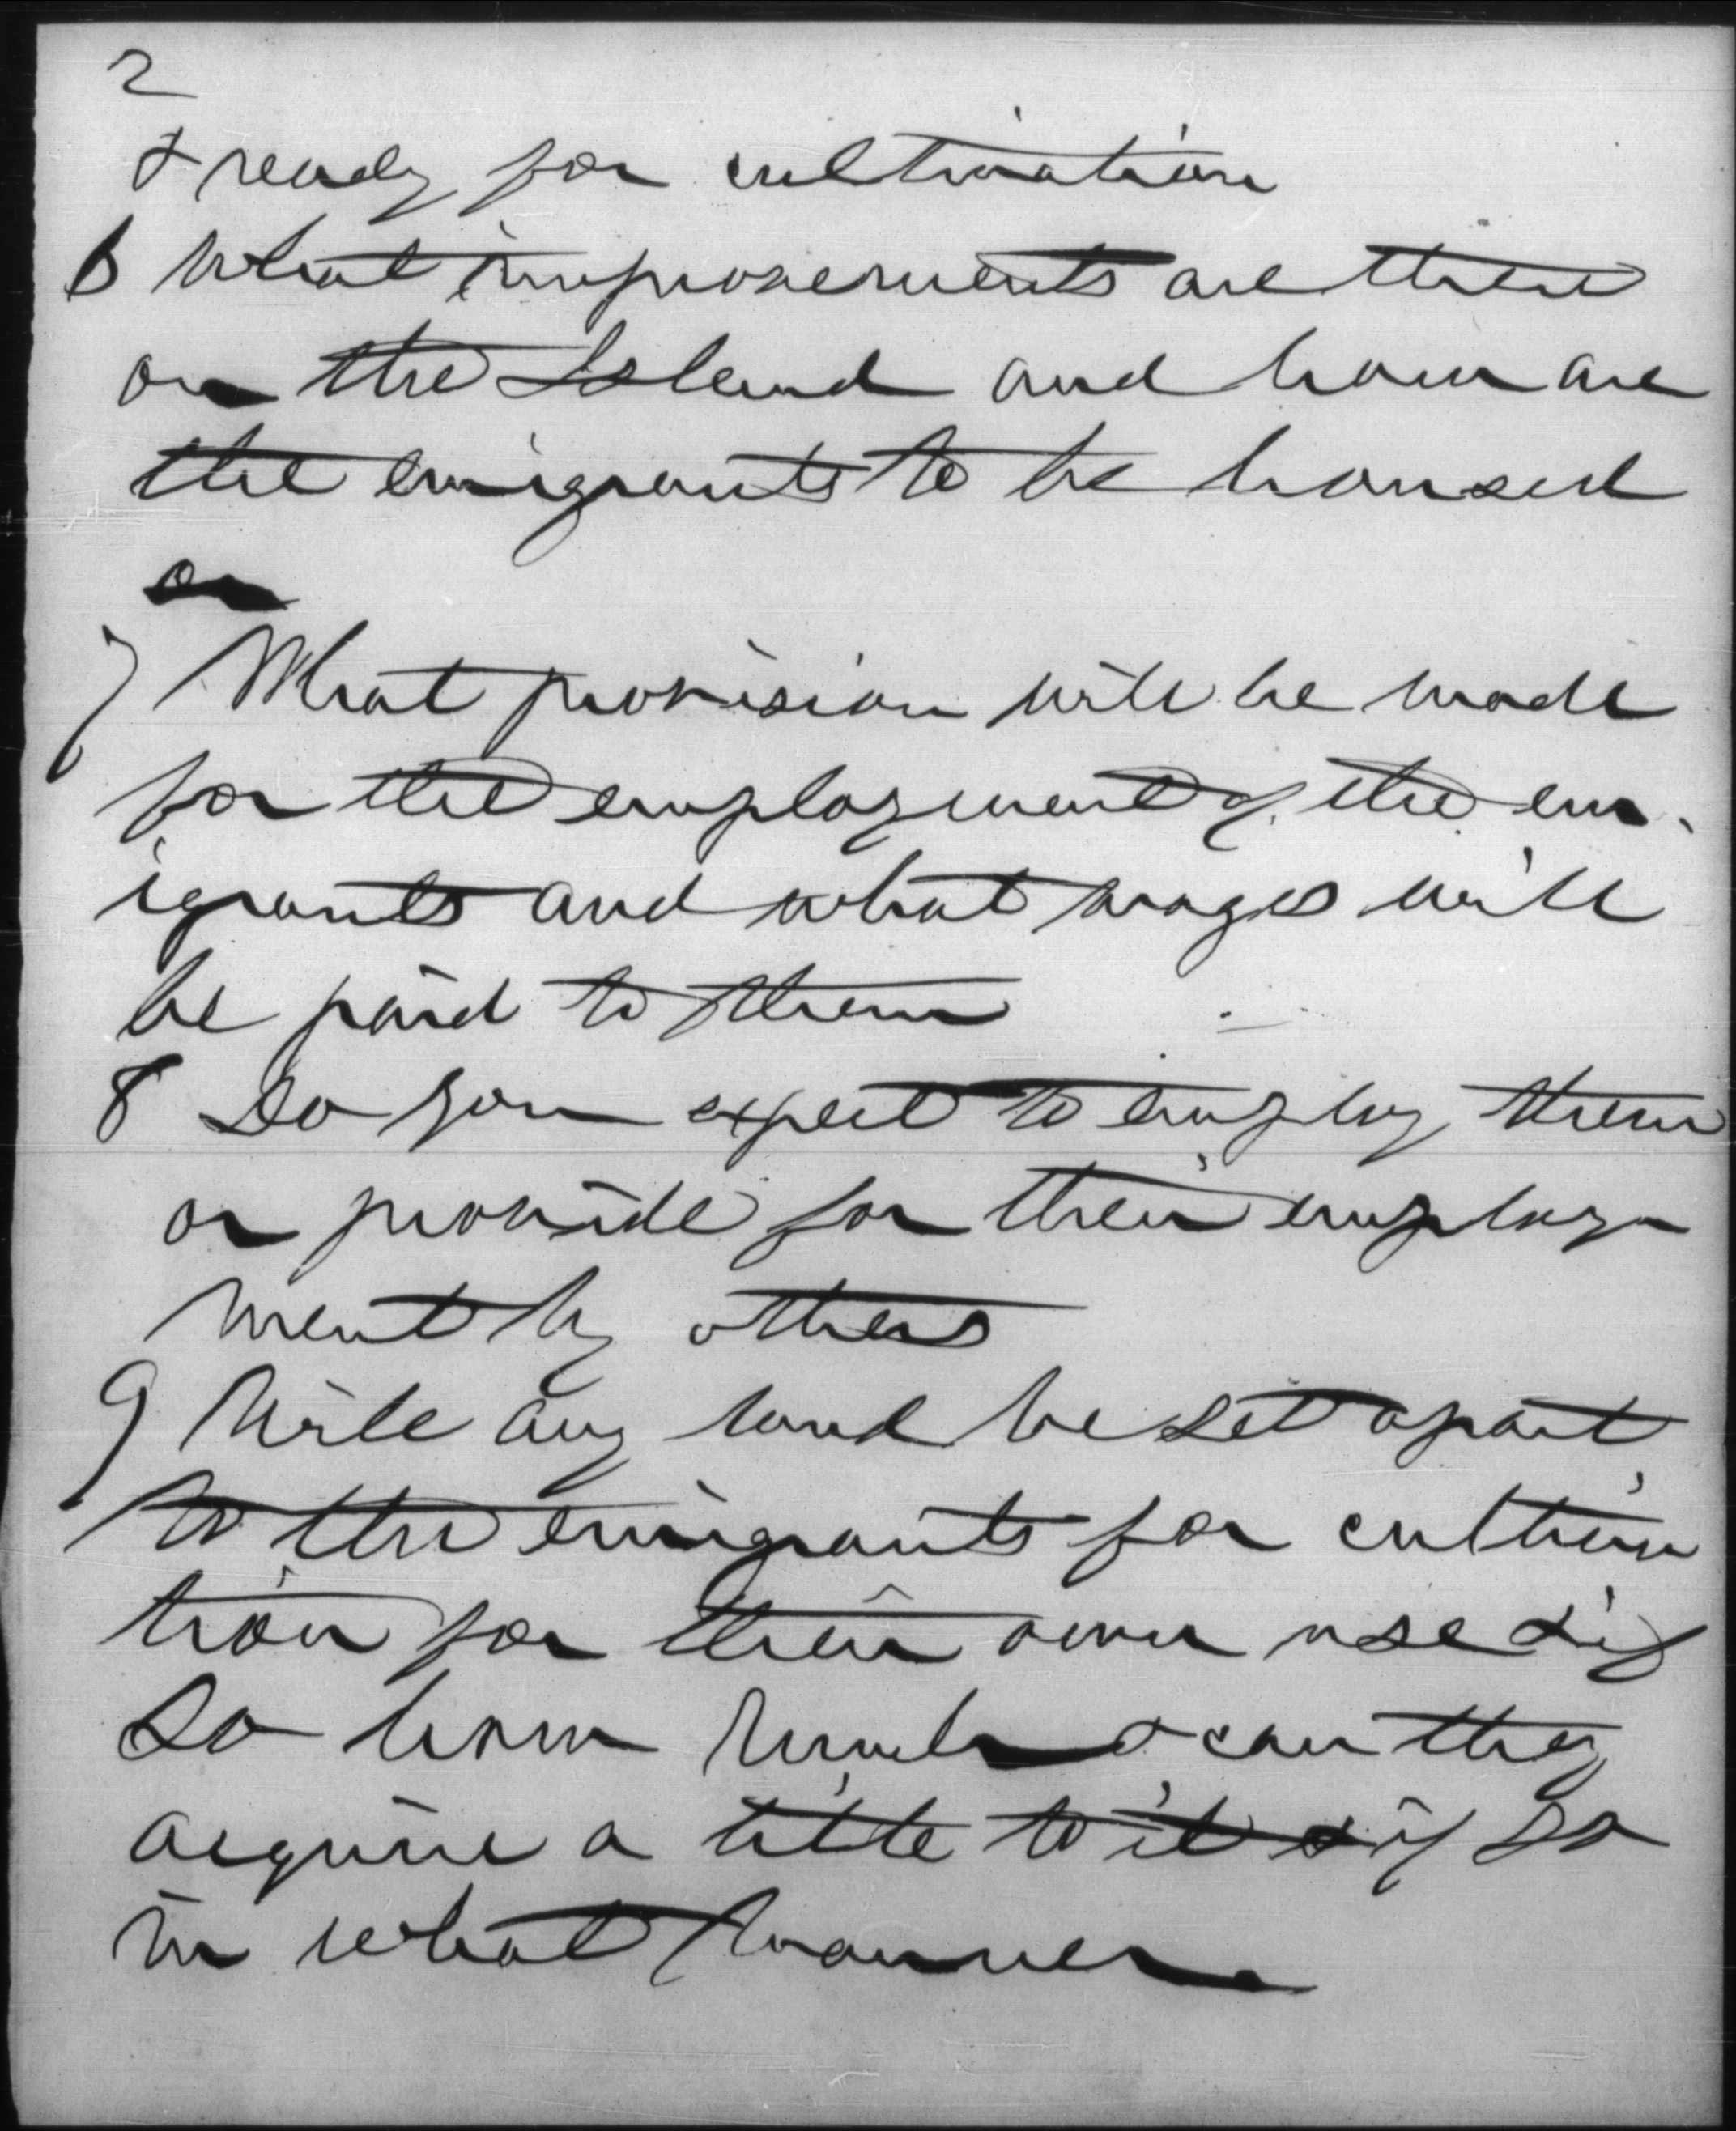 2
& ready for cultivation
6 What improvements are there
on the Island and how are
the emigrants to be housed
on
7 What provision will be made
for the employment of the em-
igrants and what wages will
be paid to them
8 Do you expect to employ them
or provide for their employ-
ment by others
9 Will any land be set apart
to the emigrants for cultiva
tion for their own use & if
so how much & can they
acquire a title to it & if so
in what manner